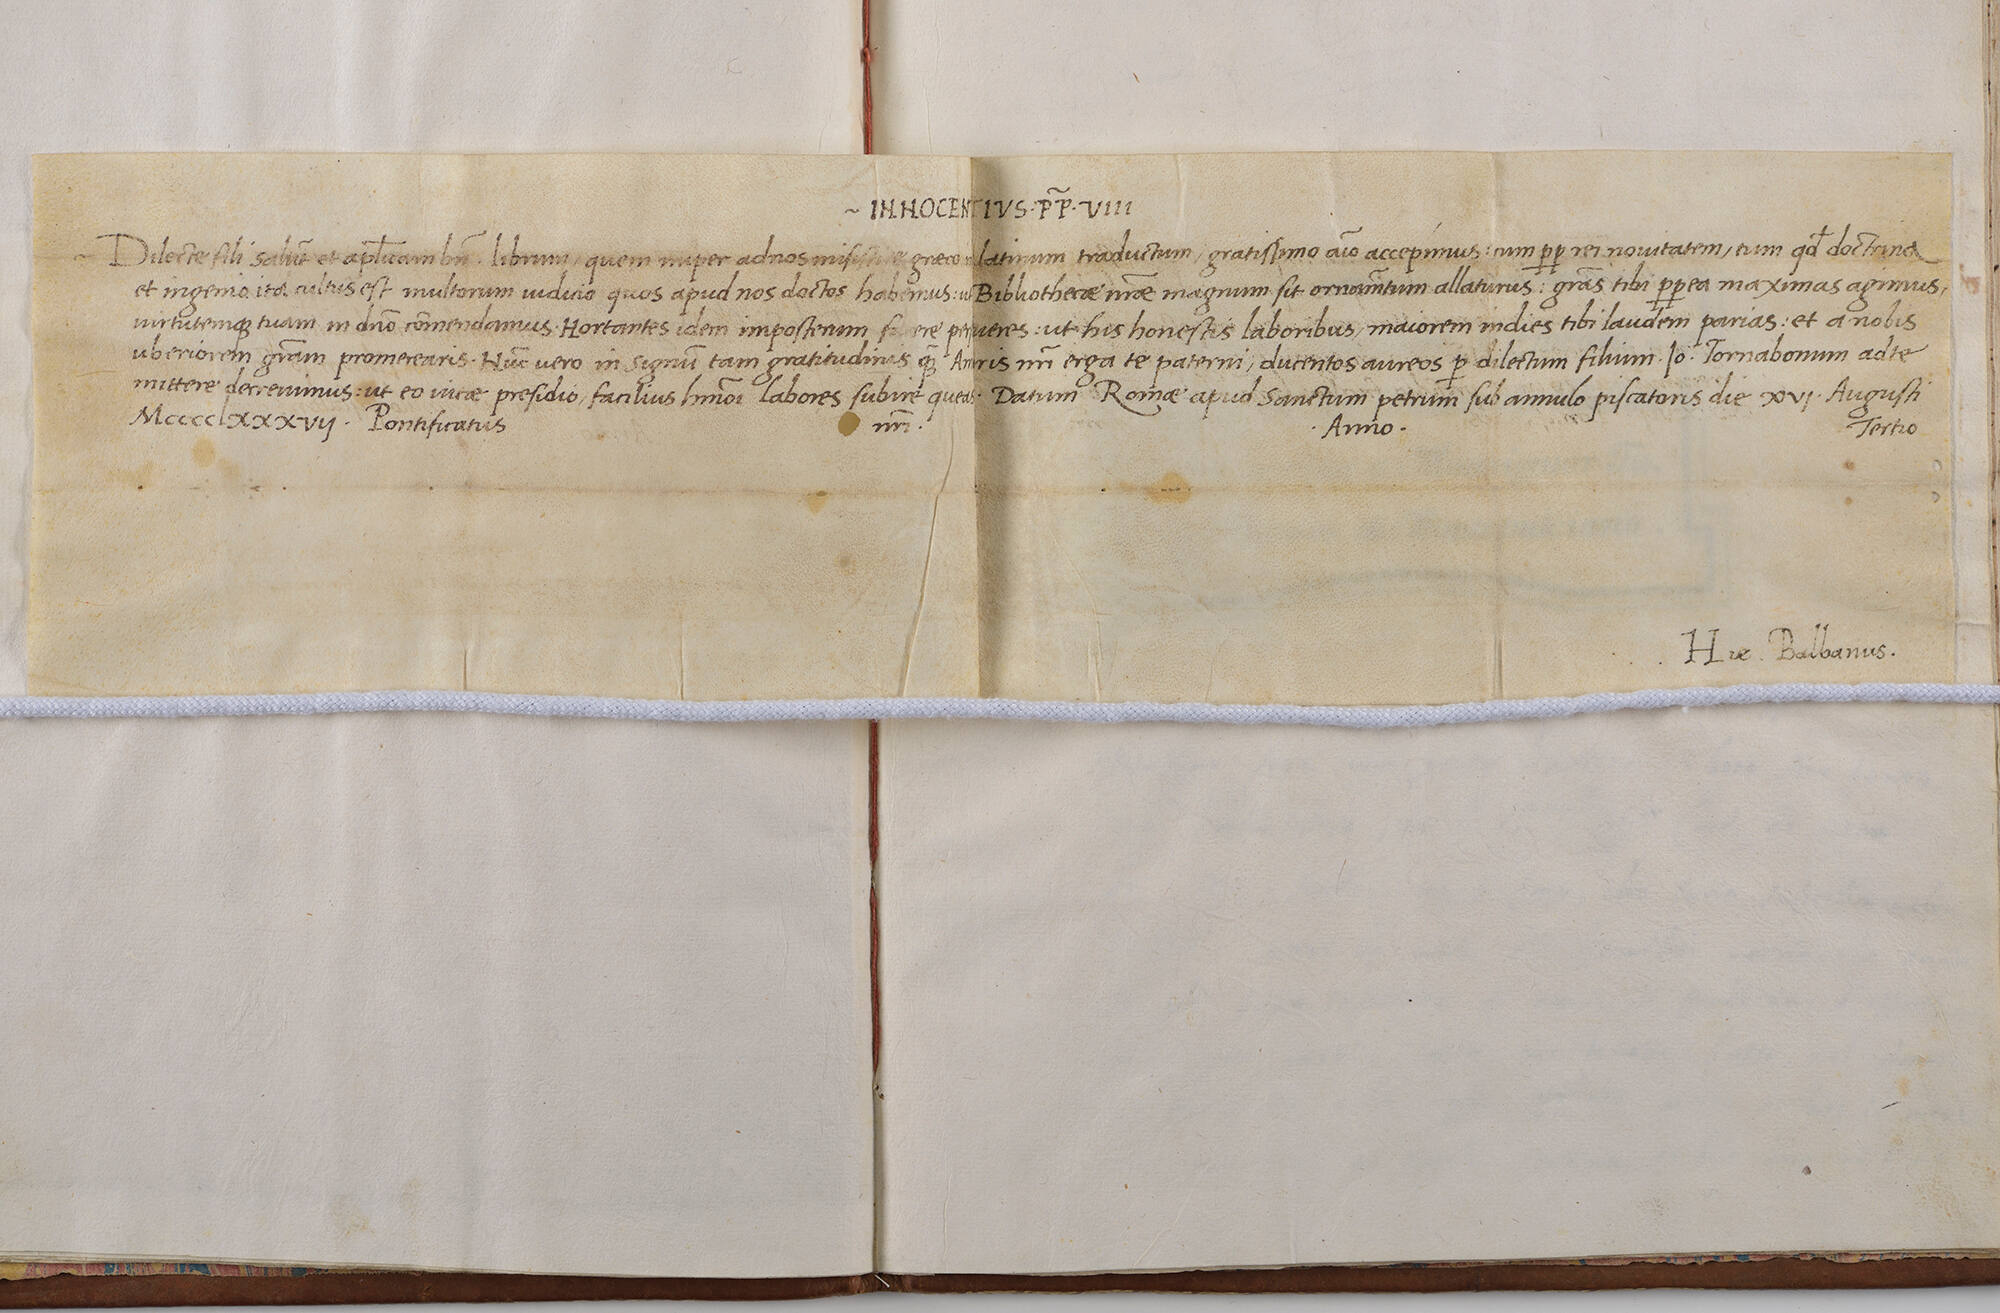 ~ INNOCENTIVS · PP̃ · VIII
Dilecte fili Salut̃ et apl̃icam bñ . librum, quem nuper ad nos misisti e græco in latinum traductum, gratissimo aĩo accepimus: cum pp̱ rei novitatem, tum qđ doctrina
et ingenio ita cultus est multorum iudicio quos apud nos doctos habemus: ut Bibliothecæ nr̃æ magnum sit ornam̃tum allaturus: gr̃as tibi pp̱ ea maximas agimus,
virtutemq; tuam in dño cõmendamus. Hortantes idem imposterum facere perseveres: ut his honestis laboribus, maiorem indies tibi laudem parias: et a nobis
uberiorem gr̃am promerearis. Nũc vero in signũ tam gratitudinis q̃ Amoris nr̃i erga te paterni, ducentos aureos p̱ dilectum filium. Io. Tornabonum ad te
mittere decrevimus: ut eo vitæ presidio, facilius hmõi labores subire queas. Datum Romæ apud Sanctum petrum sub annulo piscatoris die xvi. Augusti
MccccLxxxvij. Pontificatus nr̃i. · Anno · Tertio
Hie. Balbanus.